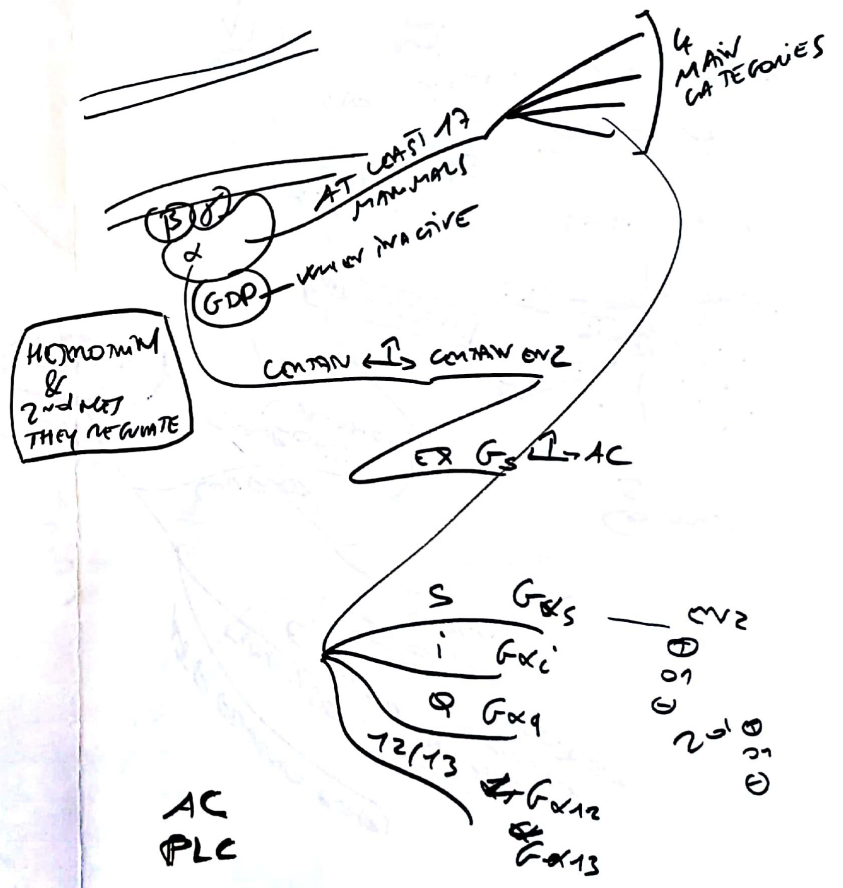 4
MAIN
CATEGORIES
AT LEAST 17
MAMMALS
β γ
α
GDP
WHEN INACTIVE
&
2nd MES
THEY REGULATE
CERTAIN CERTAIN ENZ
EX Gs AC
S Gαs ENZ
i Gαi ⊕
or
Q Gαq ⊖
2nd ⊕
or
⊖
12/13
Gα12
Gα13
AC
PLC